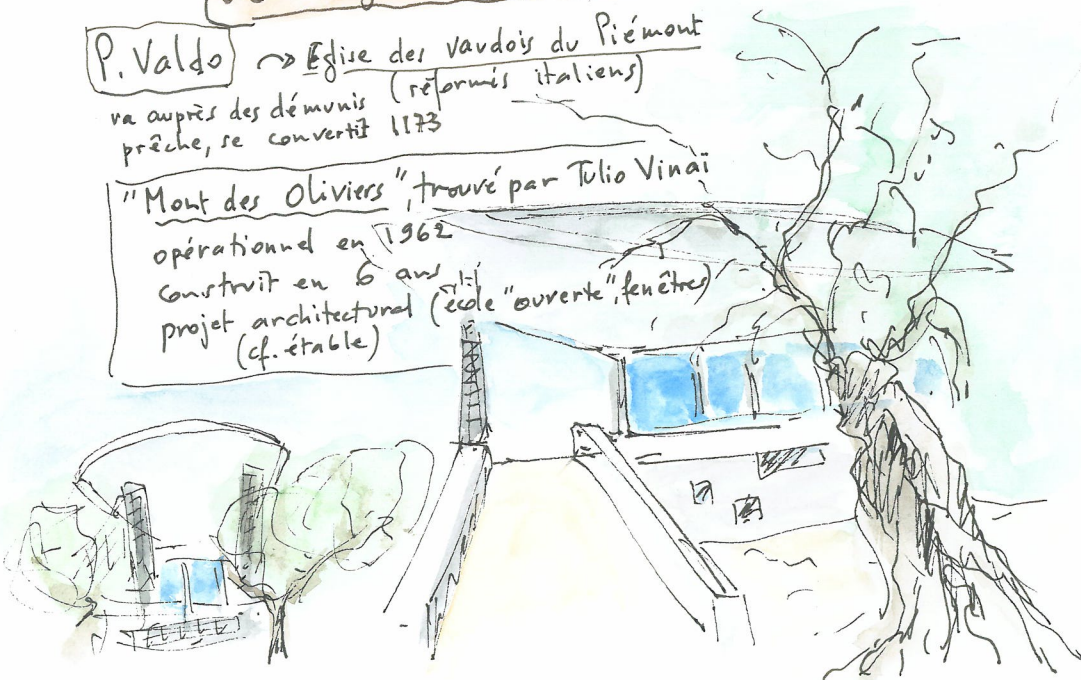 P. Valdo → Eglise des vaudois du Piémont
(réformés italiens)
va auprès des démunis
prêche, se convertit 1173
"Mont des Oliviers", trouvé par Tulio Vinaï
opérationnel en 1962
construit en 6 ans
projet architectural (école "ouverte", fenêtres)
(cf. étable)